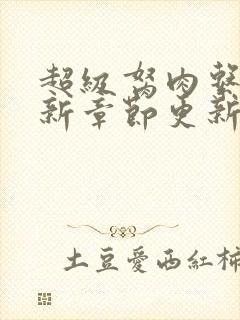 超級駑肉
新章節更新
土豆愛西紅柿